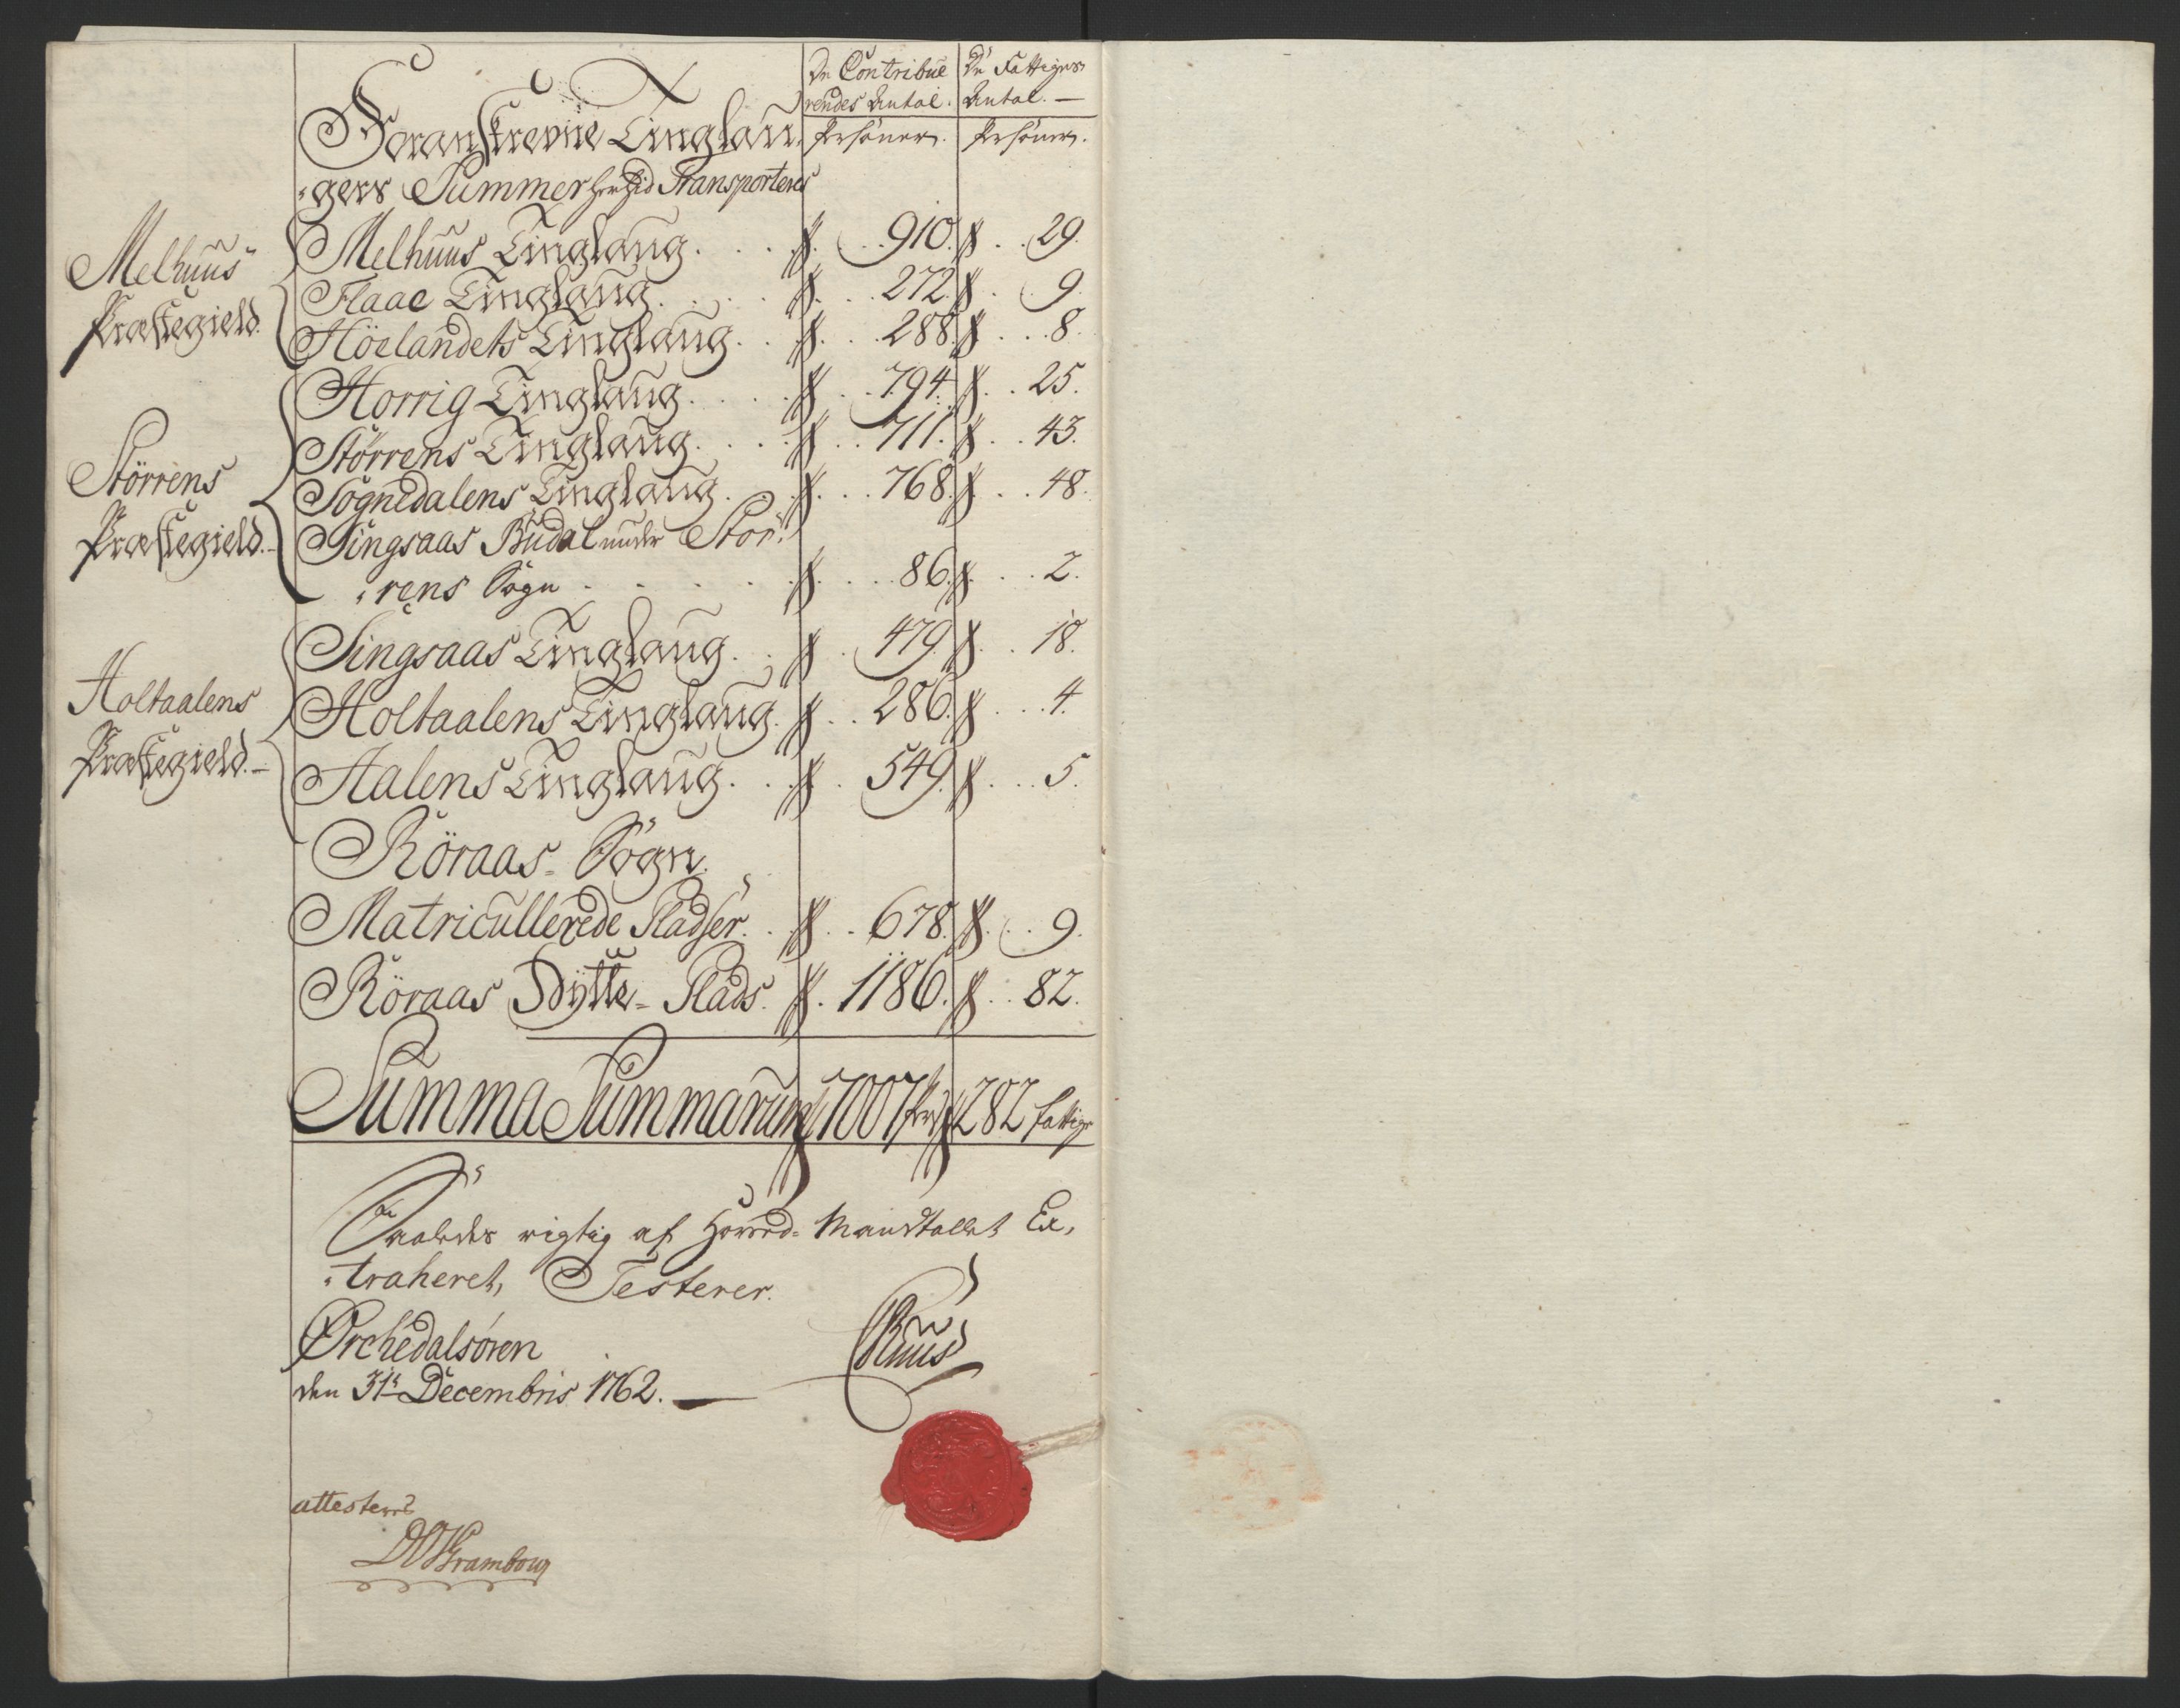 De Contribue
rendes Antal.
De Fattiges
Antal. —
Foranskrevne Tinglau
Persohner.
Persohner.
gers Summer herhid Transporteres
Melhuus
Præstegield.
Melhuus Tinglaug. . . . 910. . . 29.
Flaae Tinglaug. . . . . 272. . . 9.
Höelandets Tinglaug. . . . 288. . . 8.
Störrens
Præstegield.
Horrig Tinglaug. . . . . 794. . . 25.
Störrens Tinglaug. . . . . 711. . . 43.
Sognedalens Tinglaug. . . . 768. . . 48.
Singsaas Budal under Stör
rens Sogn . . . . . 86. . . 2.
Holtaalens
Præstegield. —
Singsaas Tinglaug. . . 479. . . 18.
Holtaalens Tinglaug. . . 286. . . 4.
Aalens Tinglaug. . . . 549. . . 5.
Röraas- Sogn.
Matricullerede Pladser. . . 678. . . 9.
Röraas Hytte- Plads. . 1186. . . 82.
Summa Summarum 7007 Pers 282 fattige
Saaledes rigtig af Hoved- Mandtallet Ex,
traheret, Testerer.
Örchedalsören
den 31te Decembris 1762. —
attesterer